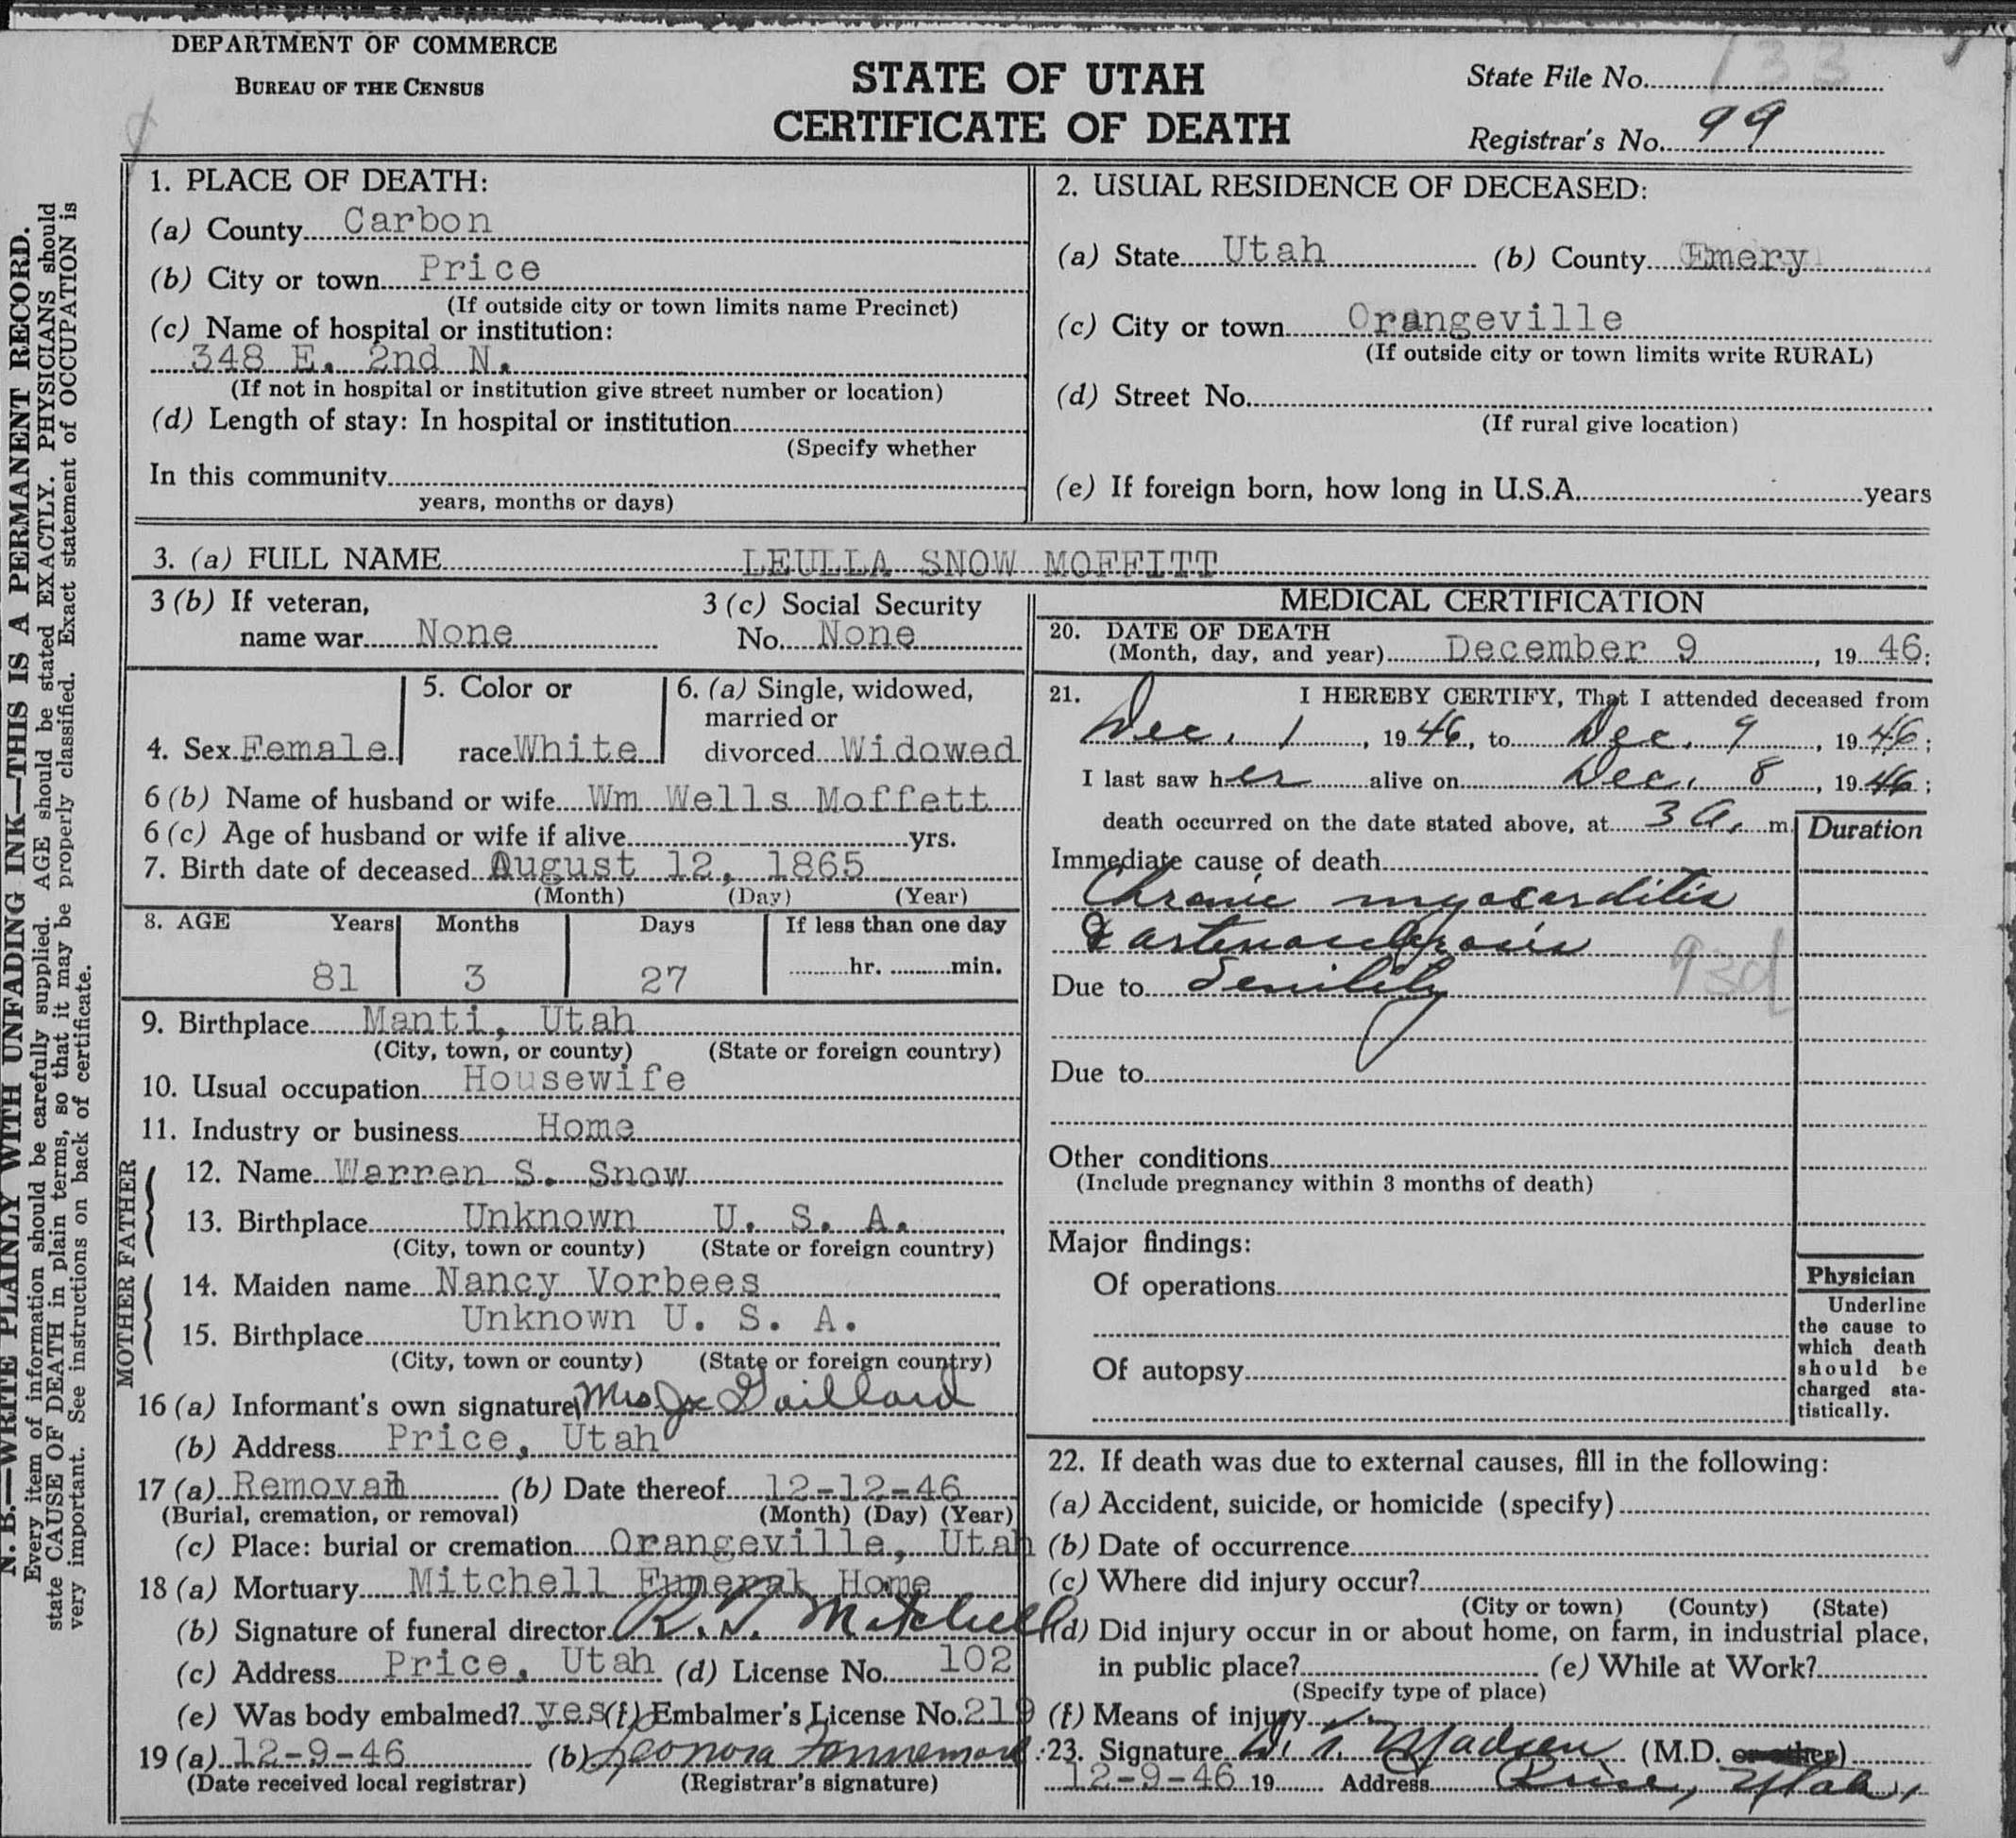 DEPARTMENT OF COMMERCE
BUREAU OF THE CENSUS
STATE OF UTAH
CERTIFICATE OF DEATH
State File No. 133
Registrar's No. 99
N. B.—WRITE PLAINLY WITH UNFADING INK—THIS IS A PERMANENT RECORD.
Every item of information should be carefully supplied. AGE should be stated EXACTLY. PHYSICIANS should
state CAUSE OF DEATH in plain terms, so that it may be properly classified. Exact statement of OCCUPATION is
very important. See instructions on back of certificate.
1. PLACE OF DEATH:
(a) County Carbon
(b) City or town Price
(If outside city or town limits name Precinct)
(c) Name of hospital or institution:
348 E. 2nd N.
(If not in hospital or institution give street number or location)
(d) Length of stay: In hospital or institution
(Specify whether
In this community
years, months or days)
2. USUAL RESIDENCE OF DECEASED:
(a) State Utah (b) County Emery
(c) City or town Orangeville
(If outside city or town limits write RURAL)
(d) Street No.
(If rural give location)
(e) If foreign born, how long in U.S.A. years
3. (a) FULL NAME LEULLA SNOW MOFFITT
3 (b) If veteran,
name war None
3 (c) Social Security
No. None
4. Sex Female
5. Color or
race White
6. (a) Single, widowed,
married or
divorced Widowed
6 (b) Name of husband or wife Wm Wells Moffett
6 (c) Age of husband or wife if alive yrs.
7. Birth date of deceased August 12, 1865
(Month) (Day) (Year)
8. AGE Years Months Days If less than one day
81 3 27 hr. min.
9. Birthplace Manti, Utah
(City, town, or county) (State or foreign country)
10. Usual occupation Housewife
11. Industry or business Home
FATHER
12. Name Warren S. Snow
13. Birthplace Unknown U. S. A.
(City, town or county) (State or foreign country)
MOTHER
14. Maiden name Nancy Vorbees
15. Birthplace Unknown U. S. A.
(City, town or county) (State or foreign country)
16 (a) Informant's own signature Mrs Jx Gaillard
(b) Address Price, Utah
17 (a) Removal (b) Date thereof 12-12-46
(Burial, cremation, or removal) (Month) (Day) (Year)
(c) Place: burial or cremation Orangeville, Utah
18 (a) Mortuary Mitchell Funeral Home
(b) Signature of funeral director R. Mitchell
(c) Address Price, Utah (d) License No. 102
(e) Was body embalmed? yes (f) Embalmer's License No. 219
19 (a) 12-9-46 (b) Leonora
(Date received local registrar) (Registrar's signature)
MEDICAL CERTIFICATION
20. DATE OF DEATH
(Month, day, and year) December 9, 1946;
21. I HEREBY CERTIFY, That I attended deceased from
Dec. 1, 1946, to Dec. 9, 1946;
I last saw her alive on Dec. 8, 1946;
death occurred on the date stated above, at 3 A. m.
Duration
Immediate cause of death
Chronic myocarditis
& arteriosclerosis
93d
Due to Senility
Due to
Other conditions
(Include pregnancy within 3 months of death)
Major findings:
Of operations
Of autopsy
Physician
Underline
the cause to
which death
should be
charged sta-
tistically.
22. If death was due to external causes, fill in the following:
(a) Accident, suicide, or homicide (specify)
(b) Date of occurrence
(c) Where did injury occur?
(City or town) (County) (State)
(d) Did injury occur in or about home, on farm, in industrial place,
in public place? (e) While at Work?
(Specify type of place)
(f) Means of injury
23. Signature Madsen (M.D. or other)
12-9-46 19 Address Price, Utah,